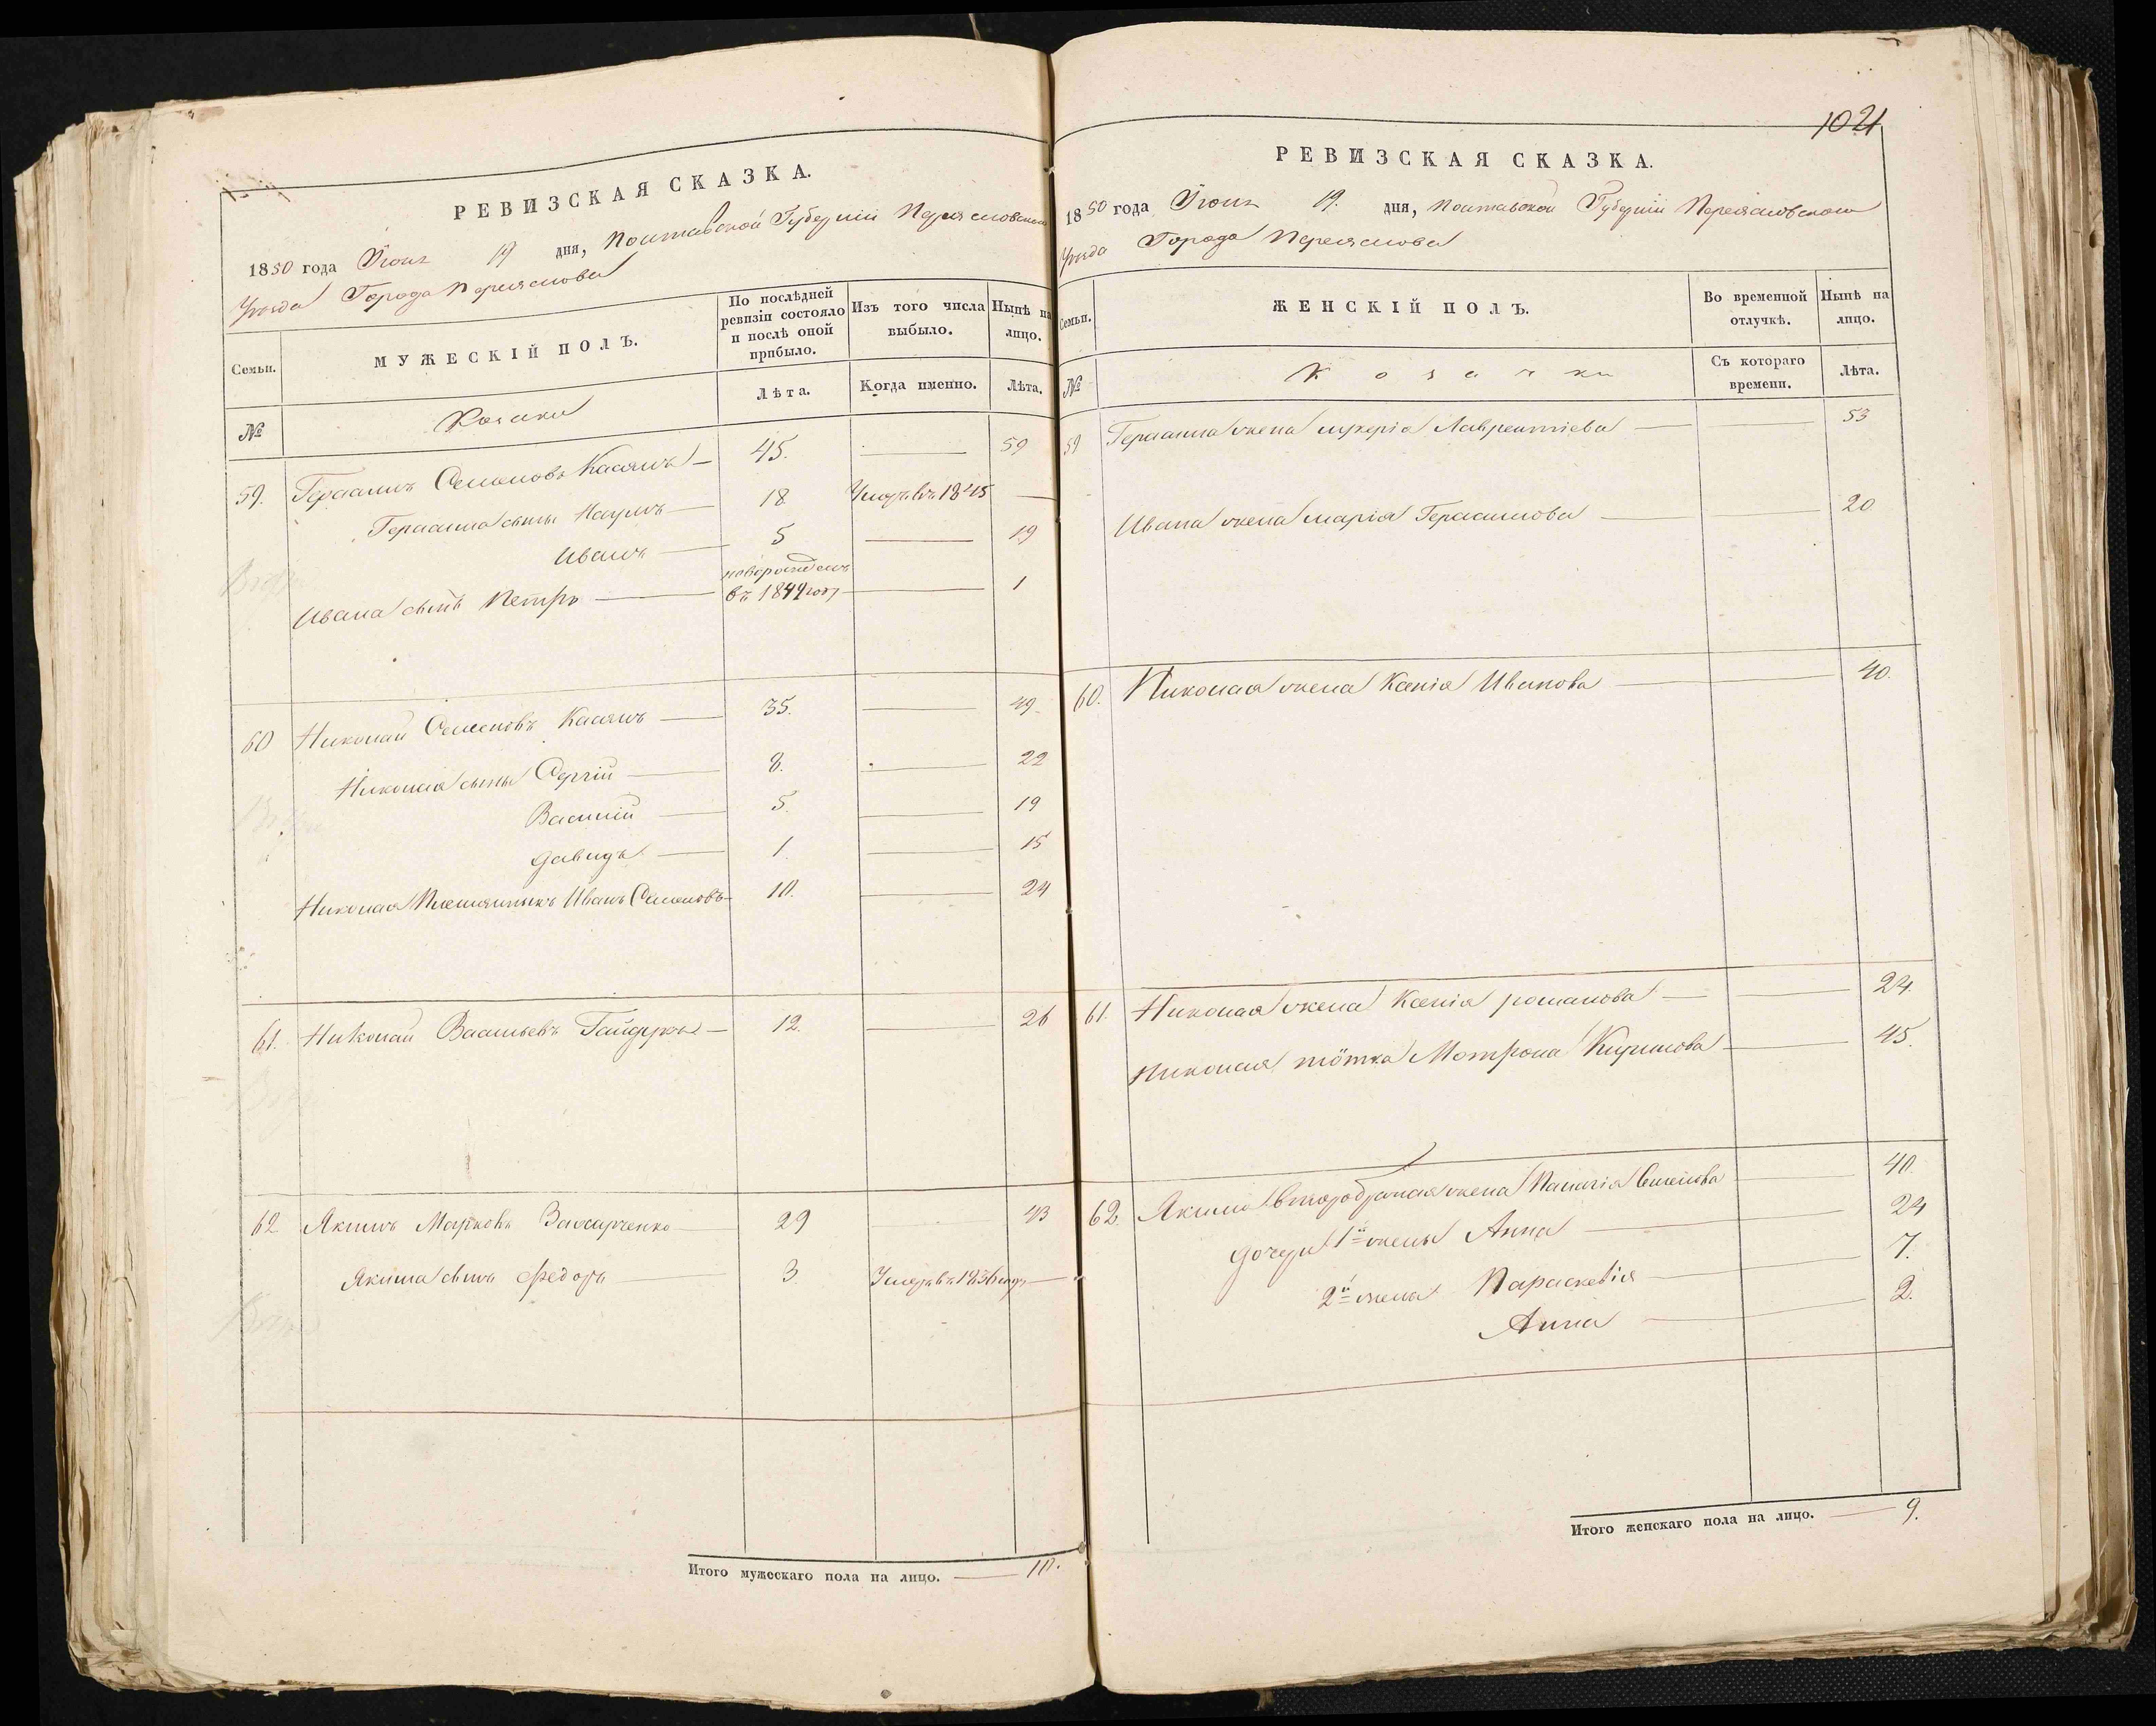 РЕВИЗСКАЯ СКАЗКА.
1850 года Іюня 19 дня, Полтавской Губерніи Переяславскаго
Уезда Города Переяслова
Семьи.
МУЖЕСКІЙ ПОЛЪ.
По послѣдней ревизіи состояло и послѣ оной прибыло.
Изъ того числа выбыло.
Нынѣ на лицо.
№
Козаки
Лѣта.
Когда именно.
Лѣта.
59. Герасимъ Семеновъ Касянъ 45. 59
Герасима сыны Наумъ 18 Умеръ въ 1845
Иванъ 5 19
новорожденъ
Ивана сынъ Петръ въ 1849 году 1
60 Николай Семеновъ Касянъ 35. 49
Николая сыны Сергій 8. 22
Василій 5. 19
Давидъ 1. 15
Николая Племянникъ Иванъ Семеновъ 10. 24
61. Николай Васильевъ 12. 26
62 Якимъ Марковъ 29 43
Якима сынъ Федоръ 3 Умеръ въ 1836 году
Итого мужескаго пола на лицо. 10.
1021
РЕВИЗСКАЯ СКАЗКА.
1850 года Іюня 19. дня, Полтавской Губерніи Переясловскаго
Уезда Города Переяслова
Семьи.
ЖЕНСКІЙ ПОЛЪ.
Во временной отлучкѣ.
Нынѣ на лицо.
№
Козачки
Съ котораго времени.
Лѣта.
59 Герасима жена Лаврентіева 53
Ивана жена Марія Герасимова 20
60. Николая жена Ксенія Иванова 40.
61. Николая жена Ксенія Романова 24.
Николая тётка Мотрона Кирилова 45.
62. Якима второбрачная жена Пелагія 40
дочери 1й жены Анна 24
2й жена Параскевія 7.
Анна 2.
Итого женскаго пола на лицо. 9.